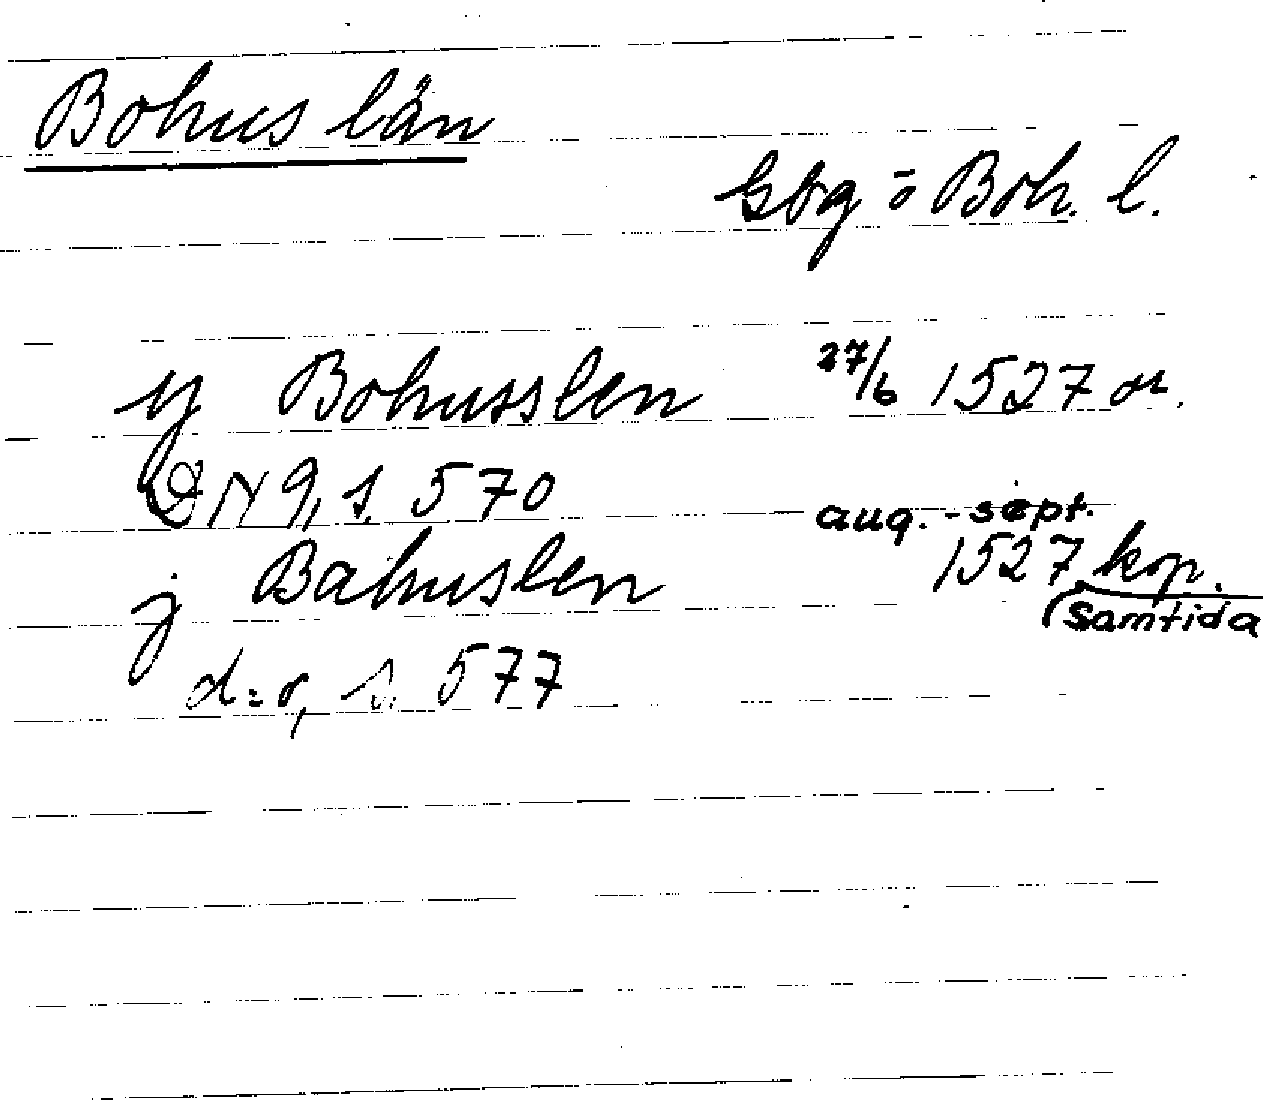 Bohus län
Gbg o Boh. l.
y Bohusslen 27/6 1527 or.
DN 9, s. 570
aug. - sept.
j Bahuslen 1527 kop.
(samtida
d:o, s. 577